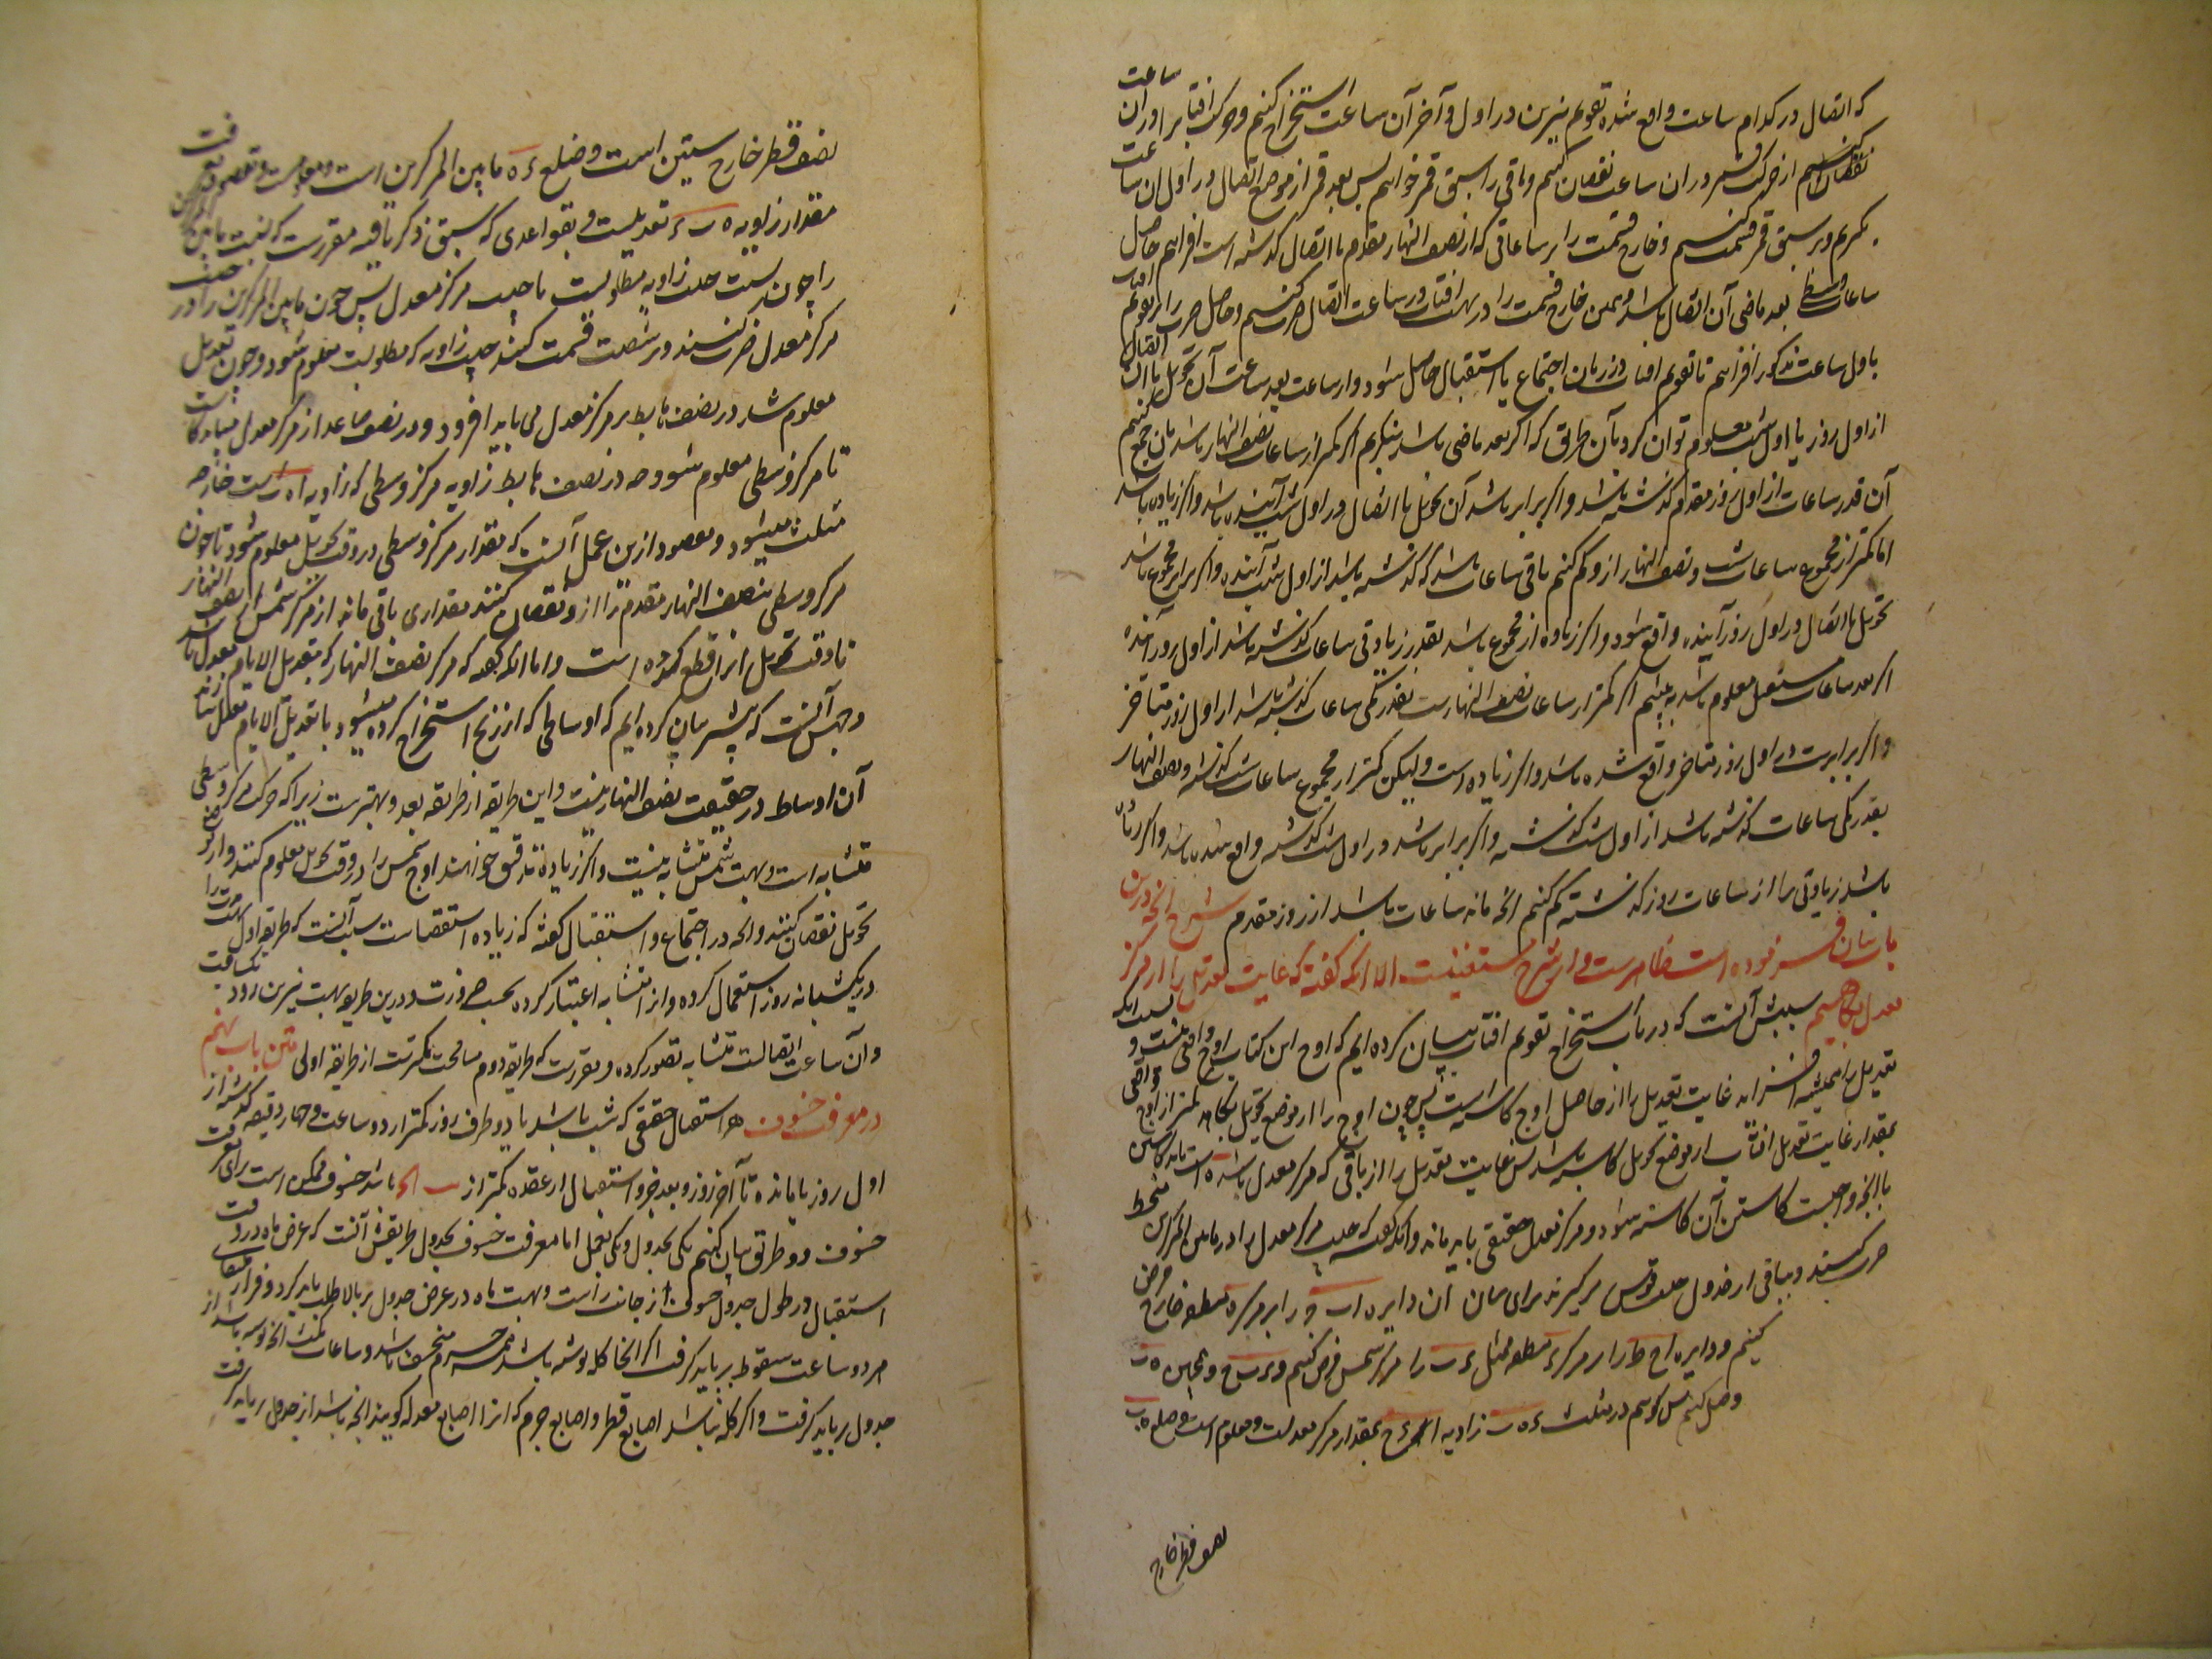 که اتصال در کدام ساعت واقع شده تقویم نیرین در اول و آخر آن ساعت استخراج کنیم و حرکت آفتاب را در آن ساعت
از حرکت قمر در آن ساعت نقصان کنیم و باقی را سبق قمر خوانیم پس بعد قمر از موضع اتصال در اول آن ساعت
بگیریم و بر سبق قمر قسمت کنیم و خارج قسمت را بر ساعاتی که از نصف النهار مقدم تا اتصال گذشته است افزاییم حاصل
ساعات وسطی بعد ماضی آن اتصال باشد و همین خارج قسمت را در بهت آفتاب در ساعت اتصال ضرب کنیم و حاصل ضرب را بر تقویم آفتاب
باول ساعت مذکور افزاییم تا تقویم آفتاب در زمان اجتماع یا استقبال حاصل شود و از ساعت بعد ساعت آن تحویل یا اتصال
از اول روز یا اول شب معلوم توان کرد بآن طریق که اگر بعد ماضی باشد بنگریم اگر کمتر از ساعات نصف النهار باشد بآن جمع کنیم
آن قدر ساعات از اول روز مقدم گذشته باشد و اگر برابر باشد آن تحویل یا اتصال در اول شب آینده باشد و اگر زیاده باشد
اما کمتر از مجموع ساعات شب و نصف النهار از و کم کنیم باقی ساعات باشد که گذشته باشد از اول شب آینده و اگر برابر مجموع باشد
تحویل یا اتصال در اول روز آینده واقع شود و اگر زیاده از مجموع باشد بقدر زیادتی ساعات گذشته باشد از اول روز آینده
اگر بعد ساعات مستقبل معلوم باشد ببینیم اگر کمتر از ساعات نصف النهارست بقدر کمی ساعات گذشته باشد از اول روز متأخر
و اگر برابرست در اول روز متأخر واقع شده باشد و اگر زیاده است ولیکن کمتر از مجموع ساعات شب گذشته و نصف النهار
بقدر کمی ساعات گذشته باشد از اول شب گذشته و اگر برابر باشد در اول شب گذشته واقع شده باشد و اگر زیاده
باشد زیادتی را از ساعات روز گذشته کم کنیم آنچه ماند ساعات باشد از روز مقدم شرح آنچه درین
باب بیان فرموده است ظاهرست و از شرح مستغنیست الا آنکه گفته که غایت تعدیل را از مرکز
معدل بکاهیم سببش آنست که در باب استخراج تقویم آفتاب بیان کرده ایم که اوج این کتاب اوج واقعی نیست و
تعدیل را همیشه افزاید غایت تعدیل را از حاصل اوج کاسته است پس چون اوج را از موضع تحویل بکاهد کمتر از اوج واقعی
بمقدار غایت تعدیل آفتاب از موضع تحویل کاسته باشد پس غایت تعدیل را از باقی که مرکز معدل باشد است باید کاستن
تا آنچه واجبست کاستن آن کاسته شود و مرکز معدل حقیقی باید ماند و آنکه گفته که جیب مرکز معدل را در مابین المرکزین منحط
ضرب کنند و باقی از جدول جیب قوس برگیرند برای بیان آن دایره اب ح را بر مرکز ه منطقه خارج فرض
کنیم و دایره اح ط را بر مرکز ء منطقه ممثل ء ب را مرکز شمس فرض کنیم و ء ب ح و همچنین ه ب
وصل کنیم پس گوییم در مثلث ء ه ب زاویه ا ء ح بمقدار مرکز معدلست و معلوم است و ضلع ه ب
نصف قطر خارج
نصف قطر خارج ستین است و ضلع ء ه مابین المرکزین است و معلومست و مقصود معرفت
مقدار زاویه ه ب ء تعدیلست و بقواعدی که سبق ذکر یافته مقررست که نسبت مابین المرکزین
را چون نسبت جیب زاویه مطلوبست با جیب مرکز معدل پس چون مابین المرکزین را در جیب
مرکز معدل ضرب کنند و بر شصت قسمت کنند جیب زاویه که مطلوبست معلوم شود و چون تعدیل
معلوم شد در نصف هابط بر مرکز معدل می باید افزود و در نصف صاعد از مرکز معدل میباید کاست
تا مرکز وسطی معلوم شود چه در نصف هابط زاویه مرکز وسطی که زاویه ا ه ب است خارجه
مثلث میشود و مقصود ازین عمل آنست که مقدار مرکز وسطی در وقت تحویل معلوم شود تا چون
مرکز وسطی نصف النهار مقدم را از و نقصان کنند مقداری باقی ماند از مرکز شمس از نصف النهار
تا وقت تحویل آنرا قطع کرده است و اما آنکه گفته که مرکز نصف النهار که بتعدیل الایام معدل باشد
وجهش آنست که پیشتر بیان کرده ایم که اوساطی که از زیج استخراج کرده میشود با تعدیل الایام معدل نسازند
آن اوساط در حقیقت نصف النهار نیست و این طریقه از طریقه بعد و بهترست زیرا که حرکت مرکز وسطی
متشابه است و بهت شمس متشابه نیست و اگر زیاده تدقیق خواهند اوج شمس را در وقت تحویل معلوم کنند و از موضع
تحویل نقصان کنند و آنچه در اجتماع و استقبال گفته که زیاده استقصاست سبب آنست که طریقه اول بهت را
در یکشبانه روز استعمال کرده و از متشابه اعتبار کرده بحسب ضرورت و درین طریقه بهت نیرین در یکساعت
و آن ساعت اتصالست متشابه تصور کرده و مقررست که طریقه دوم مسامحت کمترست از طریقه اولی متن باب نهم
در معرفت خسوف هر استقبال حقیقی که شب باشد یا دو طرف روز کمتر از دو ساعت و چهار دقیقه گذشته از
اول روز یا مانده تا آخر روز و بعد جزو استقبال از عقده کمتر از ب الح باشد خسوف ممکن است برای معرفت
خسوف دو طریق بیان کنیم یکی بجدول و یکی بعمل اما معرفت خسوف بجدول طریقش آنست که عرض ماه در وقت
استقبال در طول جدول خسوف از جانب راست و بهت ماه در عرض جدول بر بالا طلب باید کرد و از ملتقای
هر دو ساعت سقوط بر باید گرفت اگر آنجا کله نوشته باشد قمر همه جرم منخسف باشد و ساعات مکث آنچه نوشته باشد از
جدول بر باید گرفت و اگر کله نباشد اصابع قطر و اصابع جرم که آنرا اصابع معدله گویند آنچه باشد از جدول بر باید گرفت